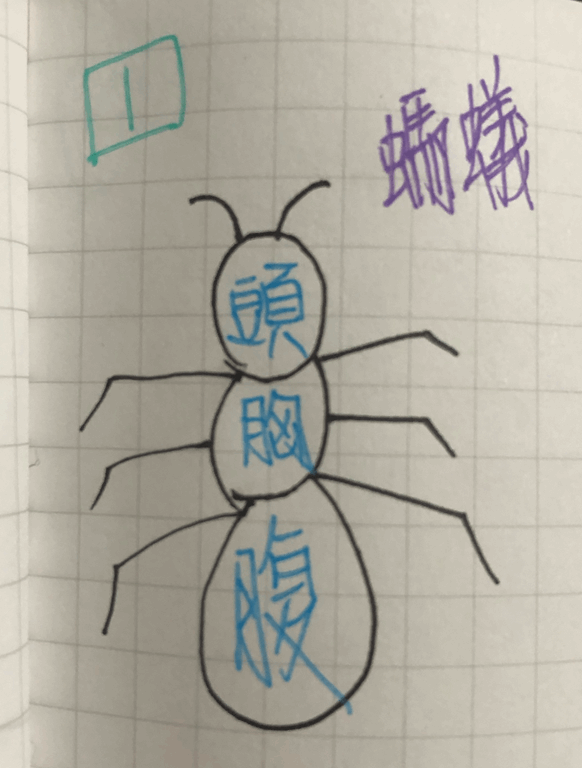 1
螞蟻
頭
胸
腹